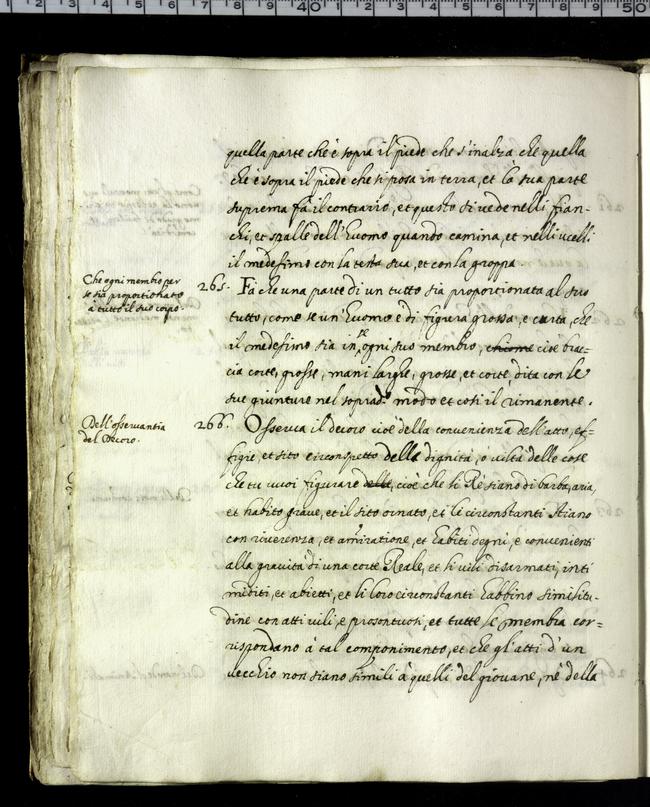 quella parte che è sopra il piede che s'inalza che quella
che è sopra il piede che si posa in terra, et la sua parte
suprema fà il contrario, et questo si vede nelli fian-
chi, et spalle dell'huomo quando camina, et nelli ucelli
il medesimo con la testa sua, et con la groppa.
Che ogni membro per
se sia proportionato
à tutto il suo corpo.
265. Fà che una parte di un tutto sia proportionata al suo
tutto, come se un'huomo è di figura grossa, e curta, che
il medesimo sia in se ogni suo membro, cioè brac-
cia corte, grosse, mani larghe, grosse, et corte, dita con le
sue giunture nel soprado. modo et così il rimanente.
Dell'osservantia
del Decoro.
266. Osserva il decoro cioè della convenienza dell'atto, ef-
figie, et sito circonspetto della dignità, o viltà delle cose
che tu vuoi figurare delle, cioè che li Rè siano di barba, aria,
et habito grave, et il sito ornato, et le circonstanti stiano
con riverenza, et amiratione, et habiti degni, e convenienti
alla gravità di una corte Reale, et li vili disarmati, inti
miditi, et abietti, et li loro circonstanti habbino similitu-
dine con atti vili, e prosontuosi, et tutte le membra cor-
rispondano à tal componimento, et che gl'atti d'un
vecchio non siano simili à quelli del giovane, nè della